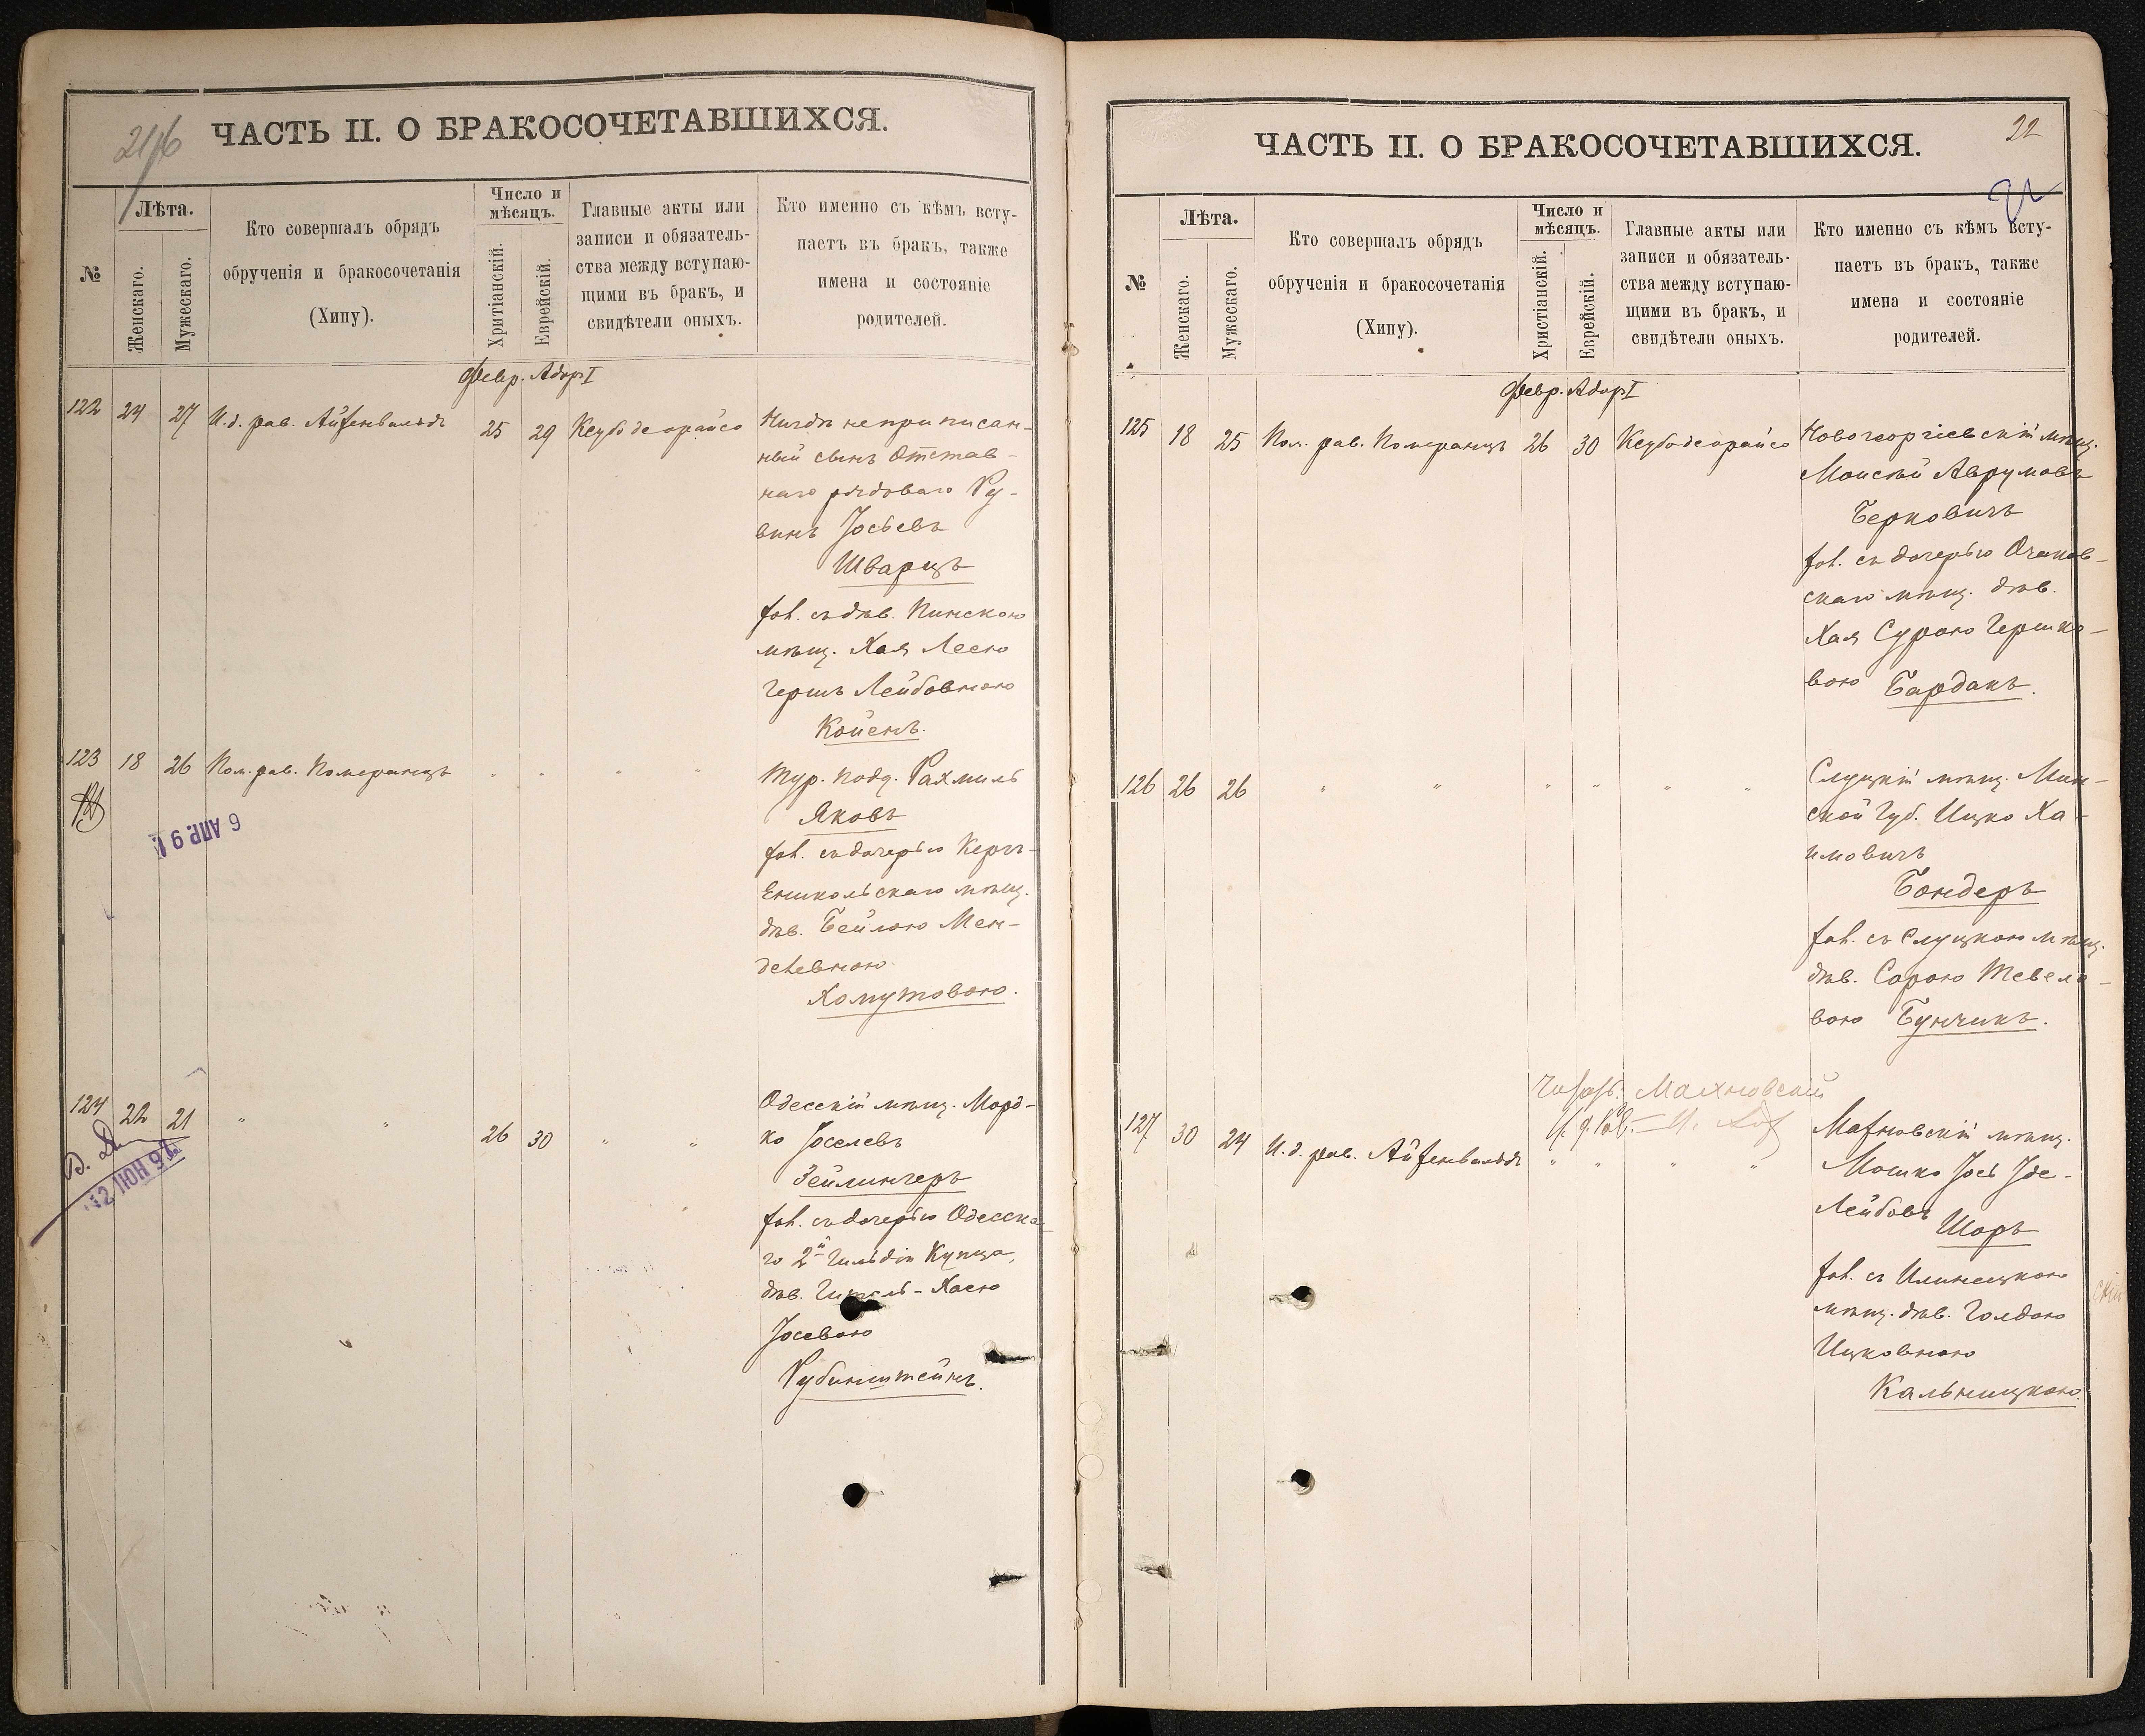 21/6
ЧАСТЬ II. О БРАКОСОЧЕТАВШИХСЯ.
№
Лѣта.
Женскаго.
Мужескаго.
Кто совершалъ обрядъ
обрученія и бракосочетанія
(Хипу).
Число и
мѣсяцъ.
Хритіанскій.
Еврейскій.
Главные акты или
записи и обязатель-
ства между вступаю-
щими въ бракъ, и
свидѣтели оныхъ.
Кто именно съ кѣмъ всту-
паетъ въ бракъ, также
имена и состояніе
родителей.
Февр. Адоръ I
122 24 27 И.д. рав. Айзенвальдъ 25 29 Ксубо деорайсо Нигдѣ неприписан-
ный сынъ Отстав-
наго рядоваго Ру-
винъ Іосьевъ
Шварцъ
хол. съ дѣв. Пинскою
мѣщ. Хая Лесею
Гершъ Лейбовною
Койенъ.
123 18 26 Пом. рав. Померанцъ " " " " Тур. подд. Рахмиль
Яковъ
6 АПР. 91
хол. съ дочерью Керчь-
Еникольскаго мѣщ.
дѣв. Бейлою Мен-
делевною
Хомутовою.
124 22 21 " " 26 30 " " Одесскій мѣщ. Морд-
ко Іоселевъ
Зейлингеръ
хол. съ дочерью Одесска-
го 2й гильдіи Купца,
дѣв. Гитель-Хаею
Іосевою
Рубинштейнъ.
ЧАСТЬ II. О БРАКОСОЧЕТАВШИХСЯ.
22
№
Лѣта.
Женскаго.
Мужескаго.
Кто совершалъ обрядъ
обрученія и бракосочетанія
(Хипу).
Число и
мѣсяцъ.
Христіанскій.
Еврейскій.
Главные акты или
записи и обязатель-
ства между вступаю-
щими въ бракъ, и
свидѣтели оныхъ.
Кто именно съ кѣмъ всту-
паетъ въ бракъ, также
имена и состояніе
родителей.
Февр. Адоръ I
125 18 25 Пом. рав. Померанцъ 26 30 Ксубо деорайсо Новогеоргіевскій мѣщ.
Моисей Аврумовъ
Берковичъ
хол. съ дочерью Очаков-
скаго мѣщ. дѣв.
Хая Сурою Гершко-
вою Бардакъ.
126 26 26 " " " " " " Слуцкій мѣщ. Мин-
ской губ. Ицко Ха-
имовичъ
Бондеръ
хол. съ Слуцкою мѣщ.
дѣв. Сорою Тевеле-
вою Бунчикъ.
Махновскій
127 30 24 И.д. рав. Айзенвальдъ " " " " Махновскій мѣщ.
Мошко Іось Іде-
Лейбовъ Шоръ
хол. съ Илинецкою
мѣщ. дѣв. Голдою
Ицковною
Кальницкою.